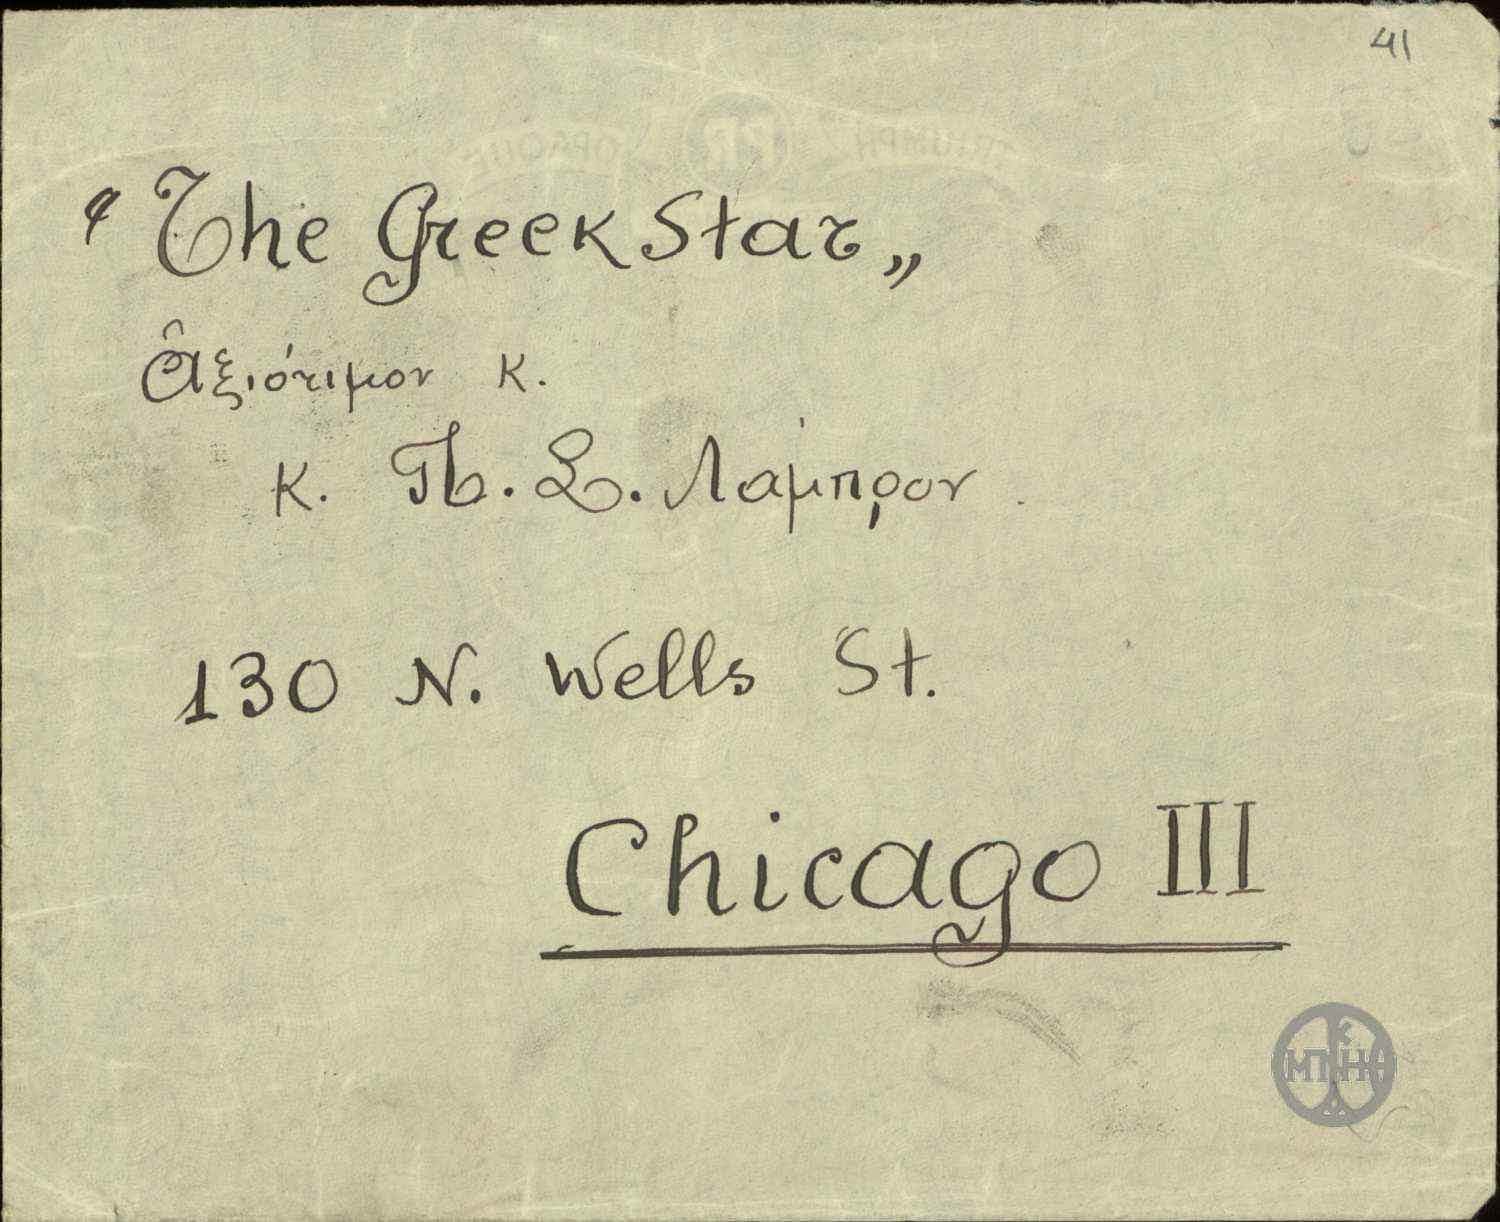 41
“The Greek Star„
Ἀξιότιμον κ.
κ. Π. Σ. Λάμπρου
130 N. Wells St.
Chicago III